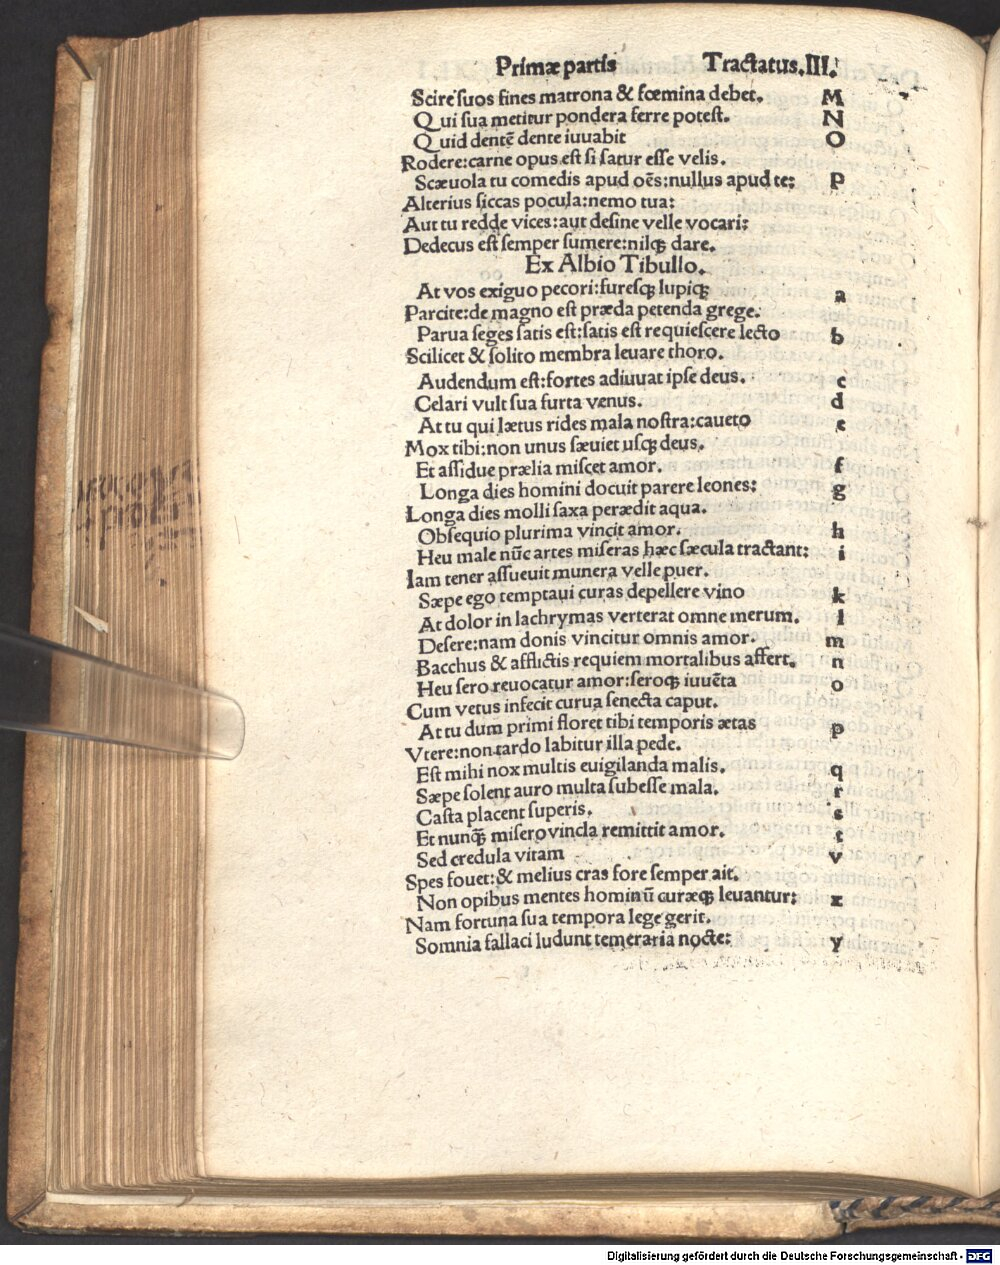 Primæ partis Tractatus.III.
Scire suos fines matrona & fœmina debet. M
Qui sua metitur pondera ferre potest. N
Quid dentē dente iuuabit O
Rodere:carne opus est si satur esse velis.
Scæuola tu comedis apud oēs:nullus apud te: P
Alterius siccas pocula:nemo tua:
Aut tu redde vices:aut desine velle vocari:
Dedecus est semper sumere:nilqȝ dare.
Ex Albio Tibullo.
At vos exiguo pecori:furesqȝ lupiqȝ a
Parcite:de magno est præda petenda grege.
Parua seges satis est:satis est requiescere lecto b
Scilicet & solito membra leuare thoro.
Audendum est:fortes adiuuat ipse deus. c
Celari vult sua furta venus. d
At tu qui lætus rides mala nostra:caueto e
Mox tibi:non unus sæuiet usqȝ deus.
Et assidue prælia miscet amor. f
Longa dies homini docuit parere leones: g
Longa dies molli saxa perædit aqua.
Obsequio plurima vincit amor. h
Heu male nūc artes miseras hæc sæcula tractant: i
Iam tener assueuit munera velle puer.
Sæpe ego temptaui curas depellere vino k
At dolor in lachrymas verterat omne merum. l
Desere:nam donis vincitur omnis amor. m
Bacchus & afflictis requiem mortalibus affert. n
Heu sero reuocatur amor:seroqȝ iuuēta o
Cum vetus infecit curua senecta caput.
At tu dum primi floret tibi temporis ætas p
Vtere:non tardo labitur illa pede.
Est mihi nox multis euigilanda malis. q
Sæpe solent auro multa subesse mala. r
Casta placent superis. s
Et nunqȝ̄ misero vincla remittit amor. t
Sed credula vitam v
Spes fouet:& melius cras fore semper ait.
Non opibus mentes hominū curæqȝ leuantur: x
Nam fortuna sua tempora lege gerit.
Somnia fallaci ludunt temeraria nocte: y
Digitalisierung gefördert durch die Deutsche Forschungsgemeinschaft - DFG